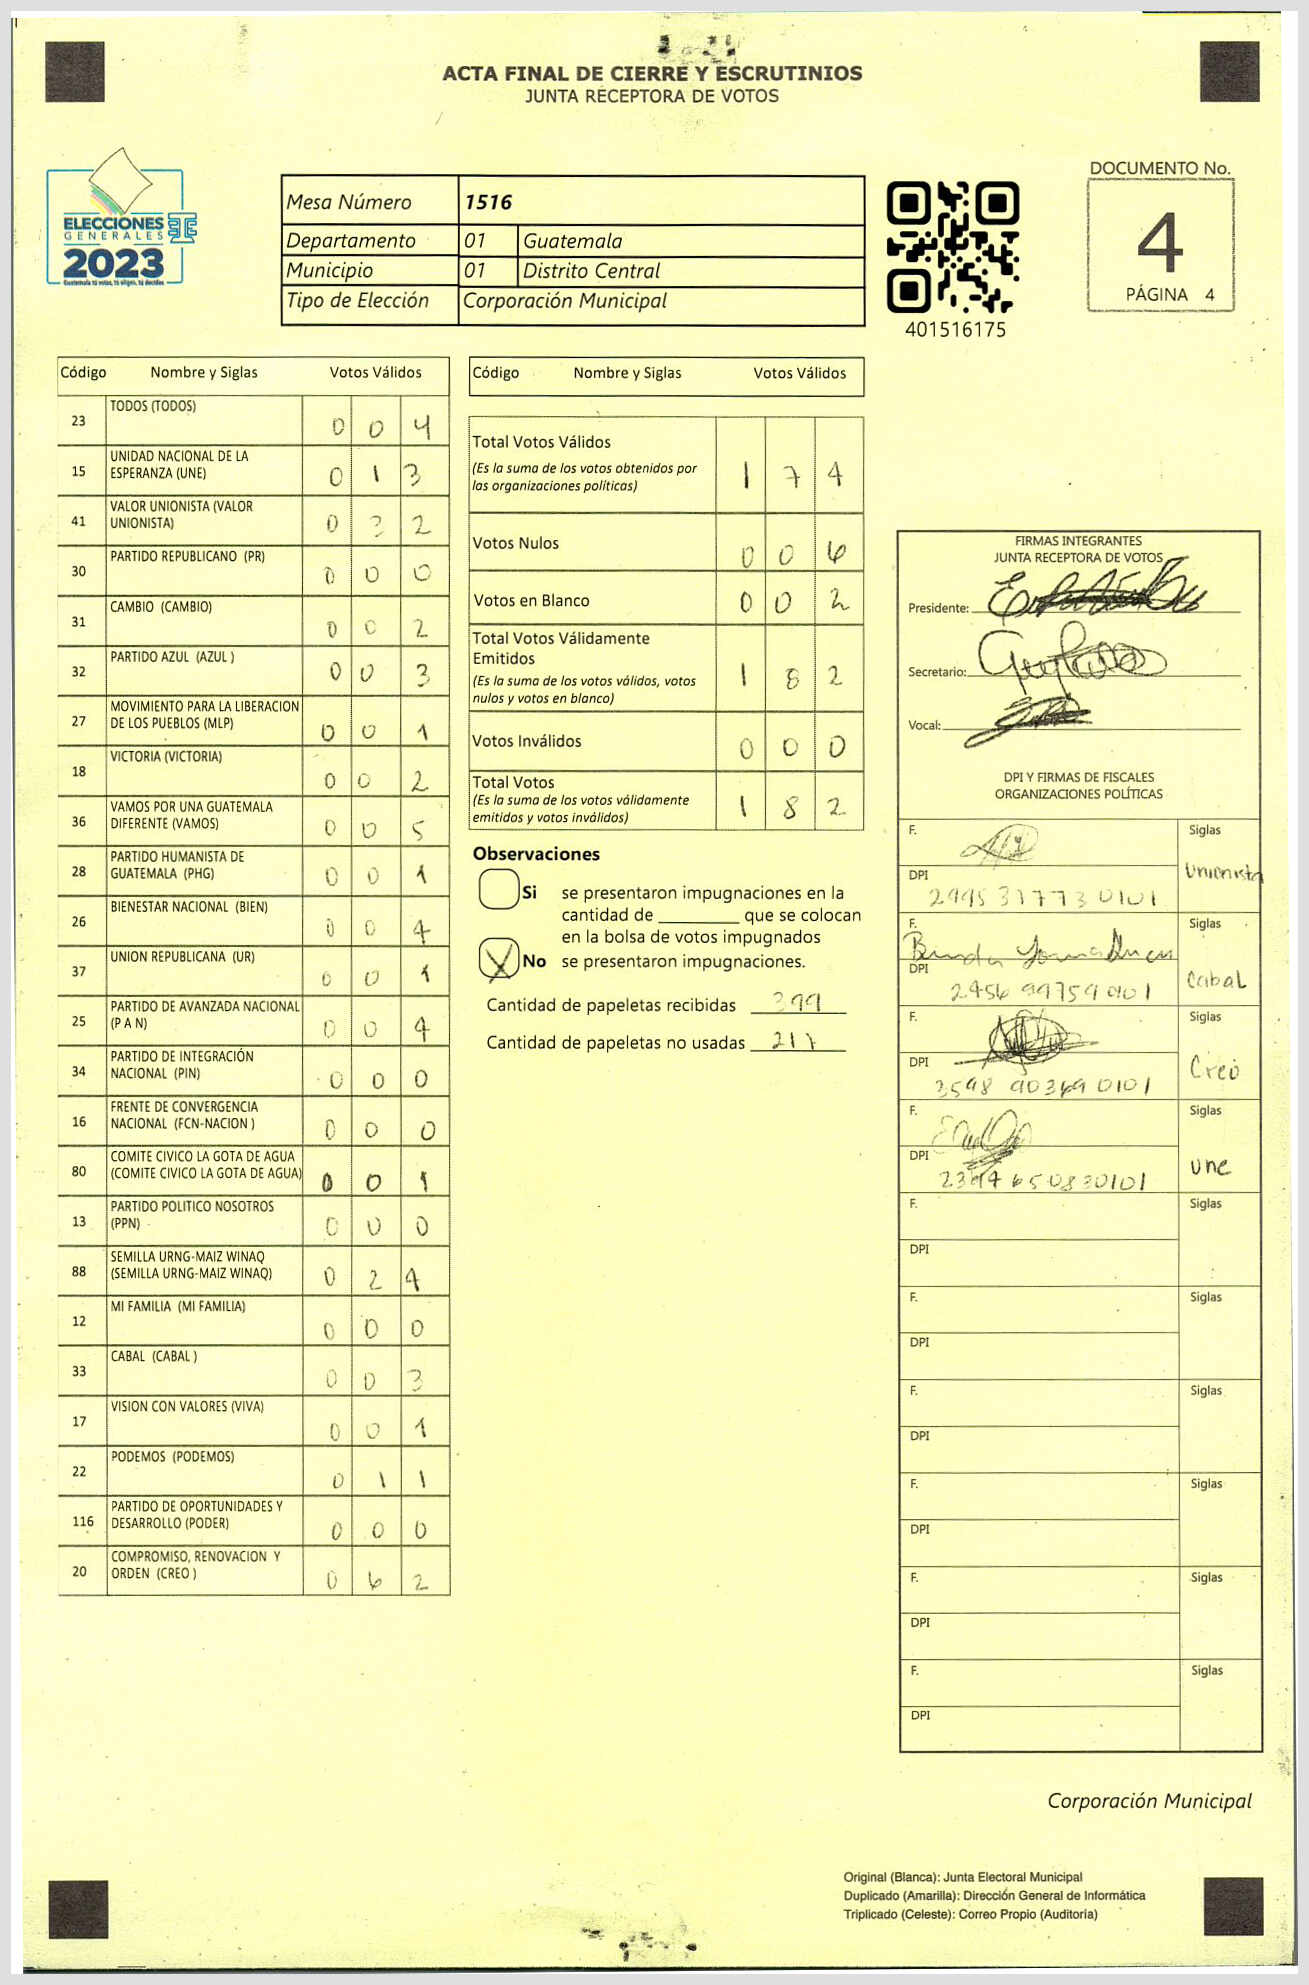 ACTA FINAL DE CIERRE Y ESCRUTINIOS
JUNTA RECEPTORA DE VOTOS
ELECCIONES
GENERALES
2023
Guatemala tú votas, tú eliges, tú decides
Mesa Número 1516
Departamento 01 Guatemala
Municipio 01 Distrito Central
Tipo de Elección Corporación Municipal
401516175
DOCUMENTO No.
4
PÁGINA 4
Código Nombre y Siglas Votos Válidos
23 TODOS (TODOS) 0 0 4
15 UNIDAD NACIONAL DE LA
ESPERANZA (UNE) 0 1 3
41 VALOR UNIONISTA (VALOR
UNIONISTA) 0 3 2
30 PARTIDO REPUBLICANO (PR) 0 0 0
31 CAMBIO (CAMBIO) 0 0 2
32 PARTIDO AZUL (AZUL ) 0 0 3
27 MOVIMIENTO PARA LA LIBERACION
DE LOS PUEBLOS (MLP) 0 0 1
18 VICTORIA (VICTORIA) 0 0 2
36 VAMOS POR UNA GUATEMALA
DIFERENTE (VAMOS) 0 0 5
28 PARTIDO HUMANISTA DE
GUATEMALA (PHG) 0 0 1
26 BIENESTAR NACIONAL (BIEN) 0 0 4
37 UNION REPUBLICANA (UR) 0 0 1
25 PARTIDO DE AVANZADA NACIONAL
(P A N) 0 0 4
34 PARTIDO DE INTEGRACIÓN
NACIONAL (PIN) 0 0 0
16 FRENTE DE CONVERGENCIA
NACIONAL (FCN-NACION ) 0 0 0
80 COMITE CIVICO LA GOTA DE AGUA
(COMITE CIVICO LA GOTA DE AGUA) 0 0 1
13 PARTIDO POLITICO NOSOTROS
(PPN) 0 0 0
88 SEMILLA URNG-MAIZ WINAQ
(SEMILLA URNG-MAIZ WINAQ) 0 2 4
12 MI FAMILIA (MI FAMILIA) 0 0 0
33 CABAL (CABAL ) 0 0 3
17 VISION CON VALORES (VIVA) 0 0 1
22 PODEMOS (PODEMOS) 0 1 1
116 PARTIDO DE OPORTUNIDADES Y
DESARROLLO (PODER) 0 0 0
20 COMPROMISO, RENOVACION Y
ORDEN (CREO ) 0 6 2
Código Nombre y Siglas Votos Válidos
Total Votos Válidos
(Es la suma de los votos obtenidos por
las organizaciones políticas) 1 7 4
Votos Nulos 0 0 6
Votos en Blanco 0 0 2
Total Votos Válidamente
Emitidos
(Es la suma de los votos válidos, votos
nulos y votos en blanco) 1 8 2
Votos Inválidos 0 0 0
Total Votos
(Es la suma de los votos válidamente
emitidos y votos inválidos) 1 8 2
Observaciones
Si se presentaron impugnaciones en la
cantidad de ________ que se colocan
en la bolsa de votos impugnados
No se presentaron impugnaciones.
Cantidad de papeletas recibidas 399
Cantidad de papeletas no usadas 217
FIRMAS INTEGRANTES
JUNTA RECEPTORA DE VOTOS
Presidente:
Secretario:
Vocal:
DPI Y FIRMAS DE FISCALES
ORGANIZACIONES POLÍTICAS
F. Siglas
Unionista
DPI
2995 31773 0101
F. Siglas
Cabal
DPI
2456 99759 0101
F. Siglas
Creo
DPI
3598 90369 0101
F. Siglas
une
DPI
F. Siglas
DPI
F. Siglas
DPI
F. Siglas
DPI
F. Siglas
DPI
F. Siglas
DPI
F. Siglas
DPI
Corporación Municipal
Original (Blanca): Junta Electoral Municipal
Duplicado (Amarilla): Dirección General de Informática
Triplicado (Celeste): Correo Propio (Auditoría)